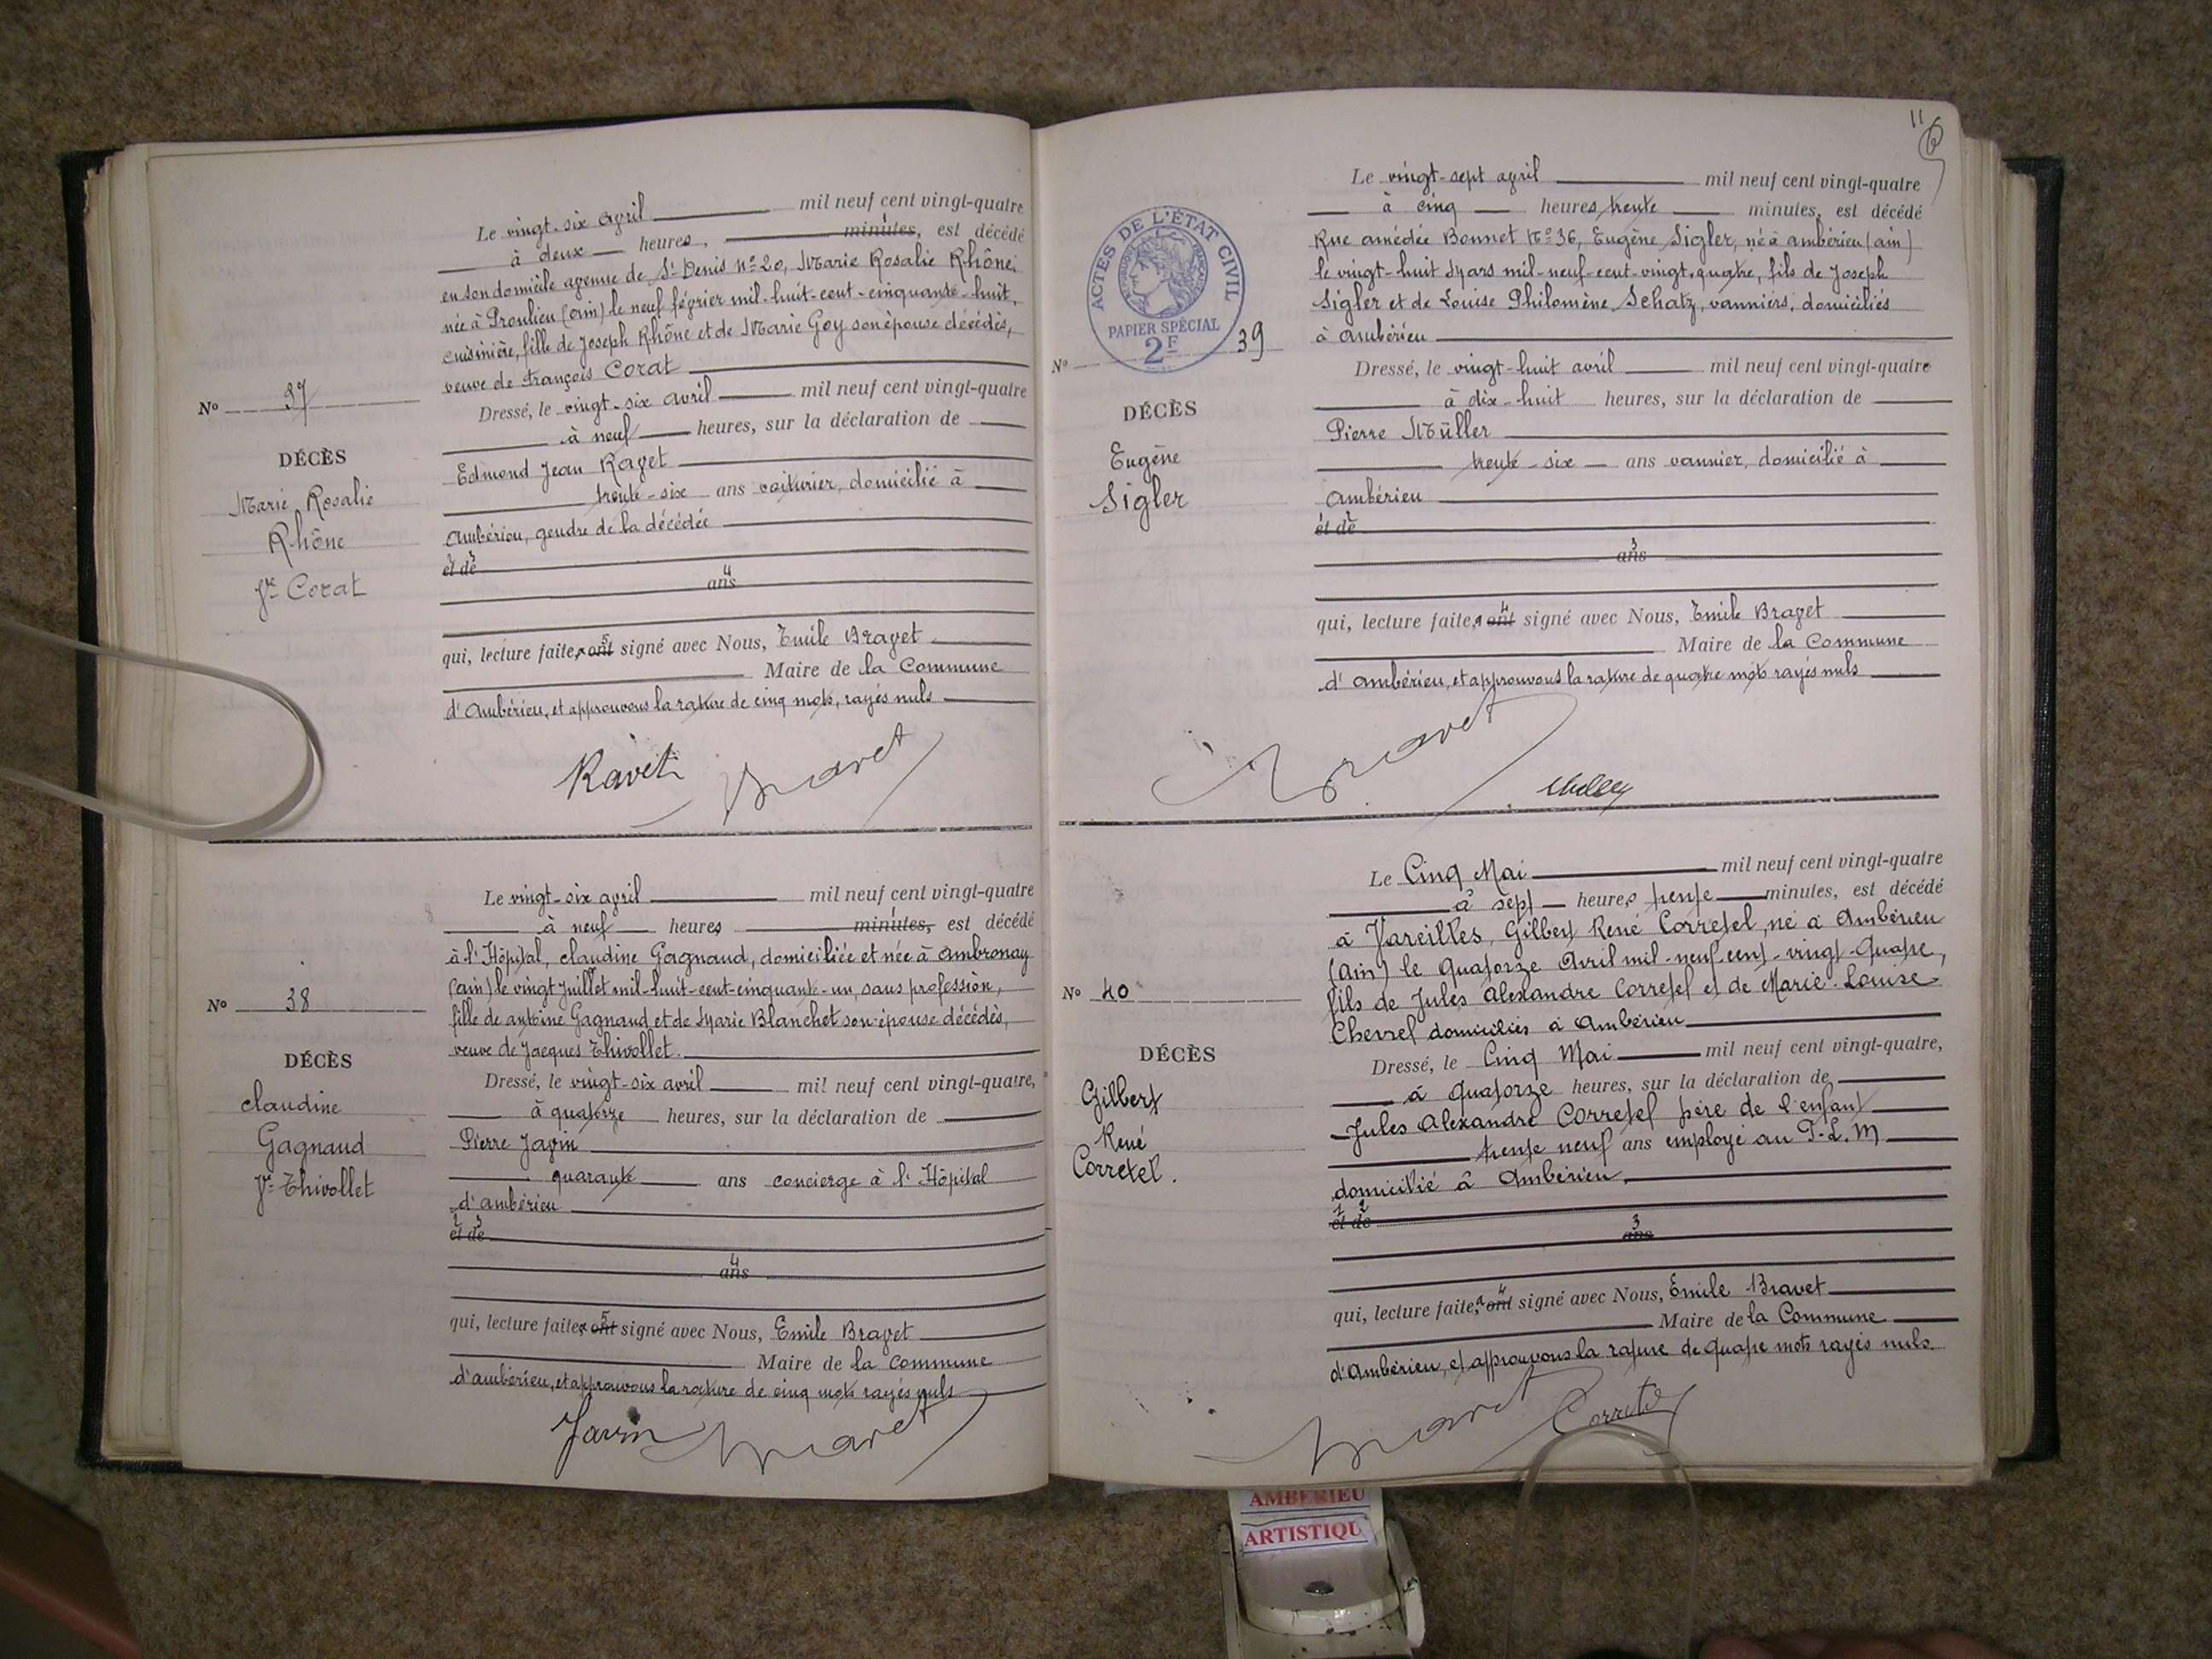 Le vingt-six avril mil neuf cent vingt-quatre
à deux heures, minutes, est décédé
en son domicile avenue de St Denis No 20, Marie Rosalie Rhône,
née à Proulieu (ain) le neuf février mil-huit-cent-cinquante-huit,
cuisinière, fille de Joseph Rhône et de Marie Goy son épouse décédés,
veuve de François Corat
Dressé, le vingt-six avril mil neuf cent vingt-quatre
à neuf heures, sur la déclaration de
Edmond Jean Ravet
trente-six ans voiturier, domicilié à
Ambérieu, gendre de la décédée
2 3
et de
4
ans
5
qui, lecture faite, a ont signé avec Nous, Emile Bravet
Maire de la Commune
d'Ambérieu, et approuvons la rature de cinq mots, rayés nuls
Ravet Bravet
No 37
DÉCÈS
Marie Rosalie
Rhône
Ve Corat
Le vingt-six avril mil neuf cent vingt-quatre
à neuf heures minutes, est décédé
à l'Hôpital, claudine Gagnaud, domiciliée et née à Ambronay
(ain) le vingt juillet mil-huit-cent-cinquante-un, sans profession,
fille de antoine Gagnaud et de Marie Blanchet son épouse décédés,
veuve de Jacques Thivollet.
Dressé, le vingt-six avril mil neuf cent vingt-quatre,
à quatorze heures, sur la déclaration de
Pierre Javin
quarante ans concierge à l'Hôpital
d'ambérieu
2 3
et de
4
ans
5
qui, lecture faite, a ont signé avec Nous, Emile Bravet
Maire de la Commune
d'ambérieu, et approuvons la rature de cinq mots rayés nuls
Javin Bravet
No 38
DÉCÈS
claudine
Gagnaud
Ve Thivollet
11
Le vingt-sept avril mil neuf cent vingt-quatre
à cinq heures trente minutes, est décédé
Rue amédée Bonnet No 36, Eugène Sigler, né à ambérieu (ain)
le vingt-huit Mars mil-neuf-cent-vingt-quatre, fils de Joseph
Sigler et de Louise Philomène Schatz, vanniers, domiciliés
à ambérieu
Dressé, le vingt-huit avril mil neuf cent vingt-quatre
à dix-huit heures, sur la déclaration de
Pierre Müller
trente-six ans vannier, domicilié à
ambérieu
1 2
et de
3
ans
4
qui, lecture faite, a ont signé avec Nous, Emile Bravet
Maire de la Commune
d'ambérieu, et approuvons la rature de quatre mots rayés nuls
Bravet
ACTES DE L'ÉTAT CIVIL
PAPIER SPÉCIAL
2F
No 39
DÉCÈS
Eugène
Sigler
Le Cinq Mai mil neuf cent vingt-quatre
à sept heures trente minutes, est décédé
à Vareilles, Gilbert René Corretel, né à Ambérieu
(Ain) le Quatorze Avril mil-neuf cent-vingt-Quatre,
fils de Jules Alexandre Corretel et de Marie-Louise
Chevrel domiciliés à Ambérieu
Dressé, le Cinq Mai mil neuf cent vingt-quatre,
à Quatorze heures, sur la déclaration de
Jules Alexandre Corretel père de l'enfant
trente neuf ans employé au P.L.M
domicilié à Ambérieu
1 2
et de
3
ans
4
qui, lecture faite, a ont signé avec Nous, Emile Bravet
Maire de la Commune
d'Ambérieu, et approuvons la rature de Quatre mots rayés nuls.
Bravet Corretel
No 40
DÉCÈS
Gilbert
René
Corretel.
AMBERIEU
ARTISTIQU